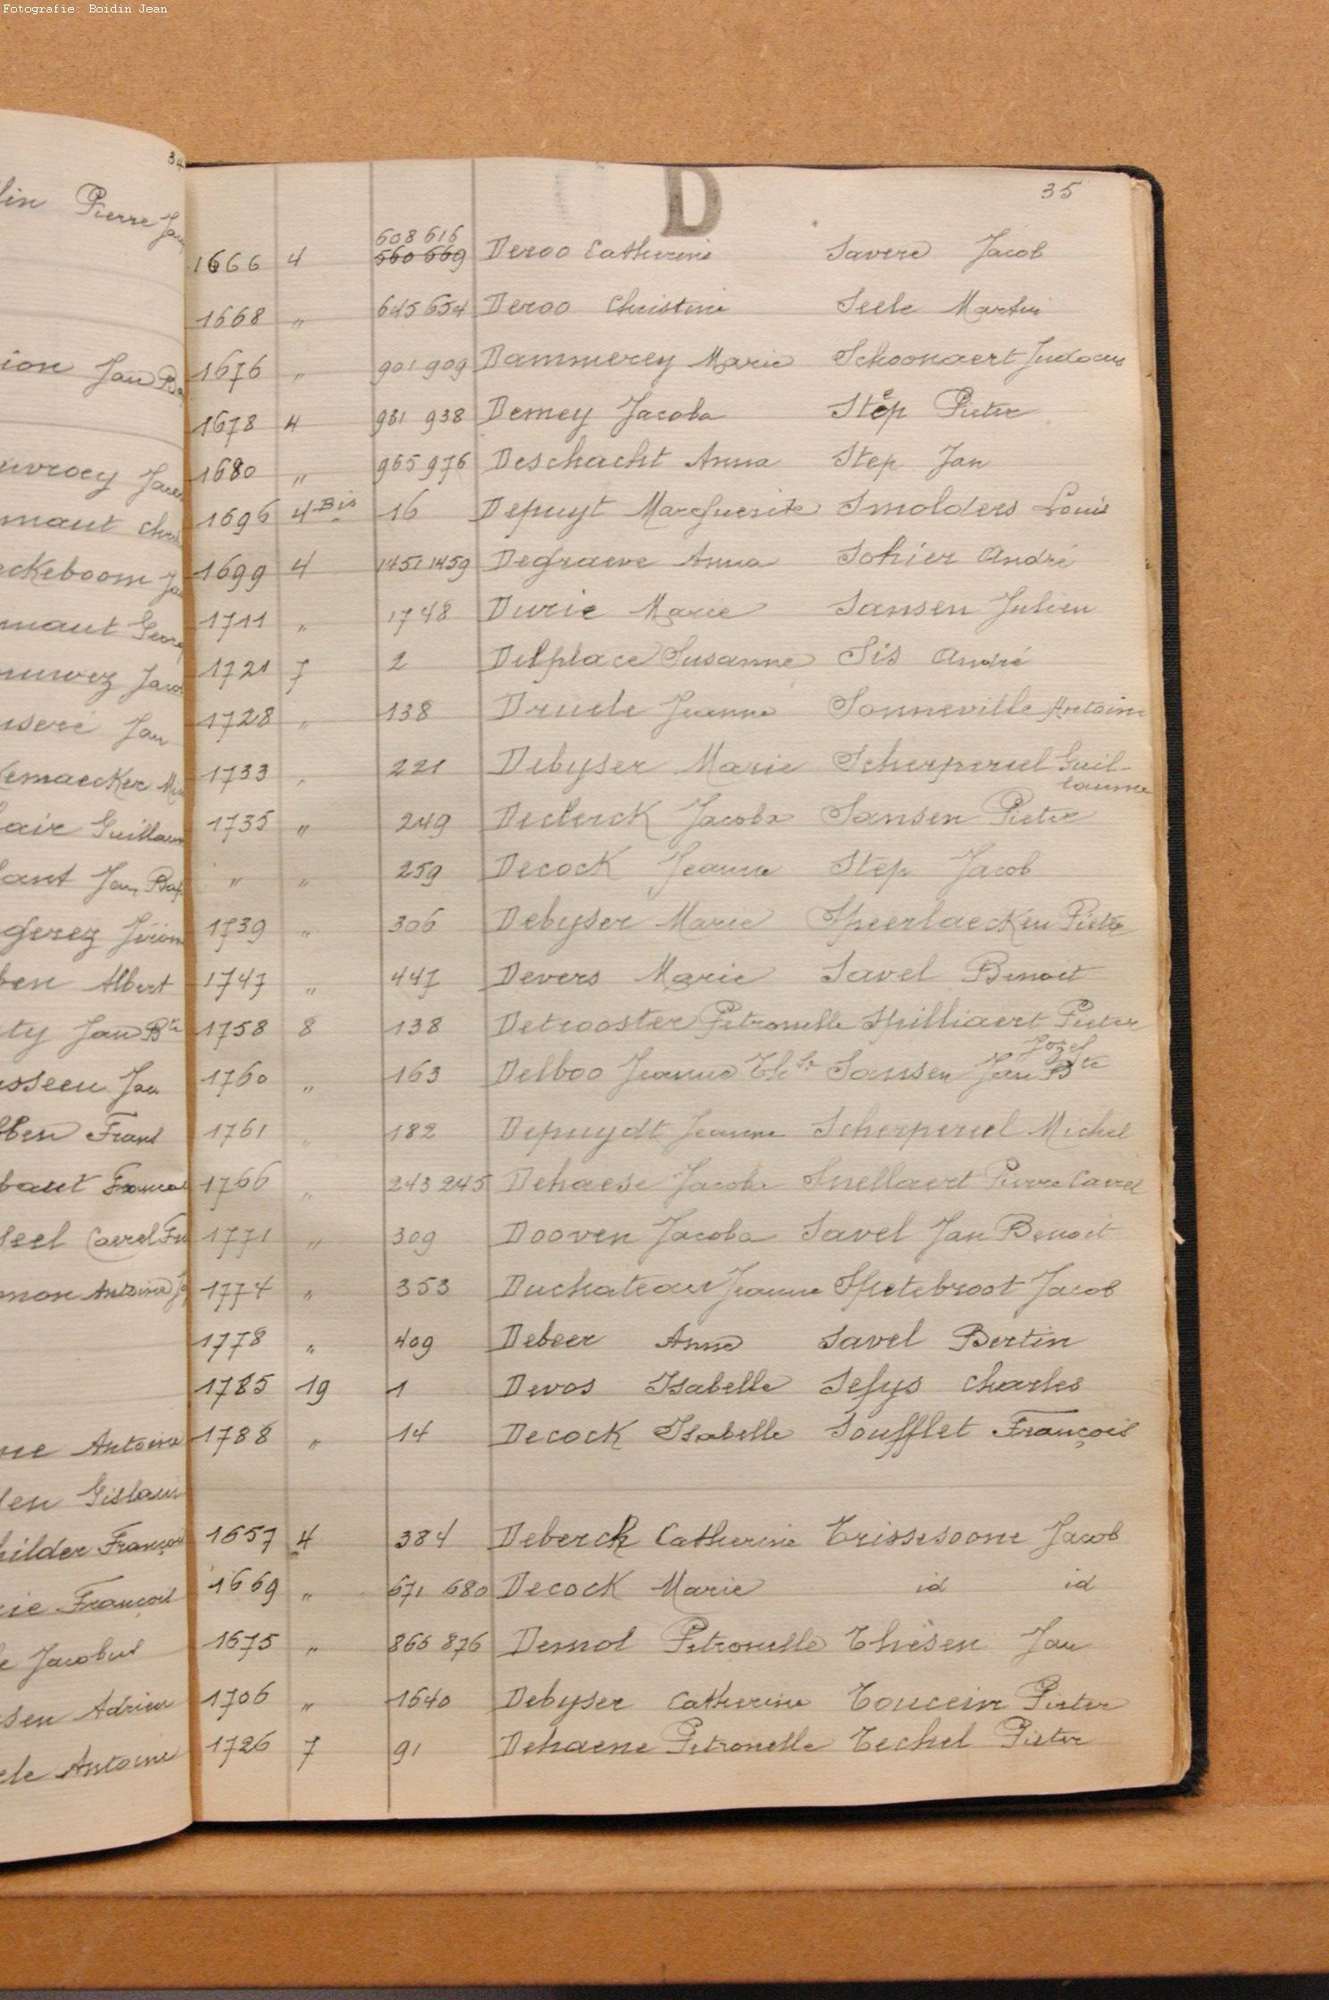 Fotografie: Boidin Jean
34
Pierre
Jan
Albert
Jan Bte
Jan
Frans
Antoine
Gislain
François
François
Jacobus
Adrien
Antoine
D
35
608 616
1666 4 560 669 Deroo Catherine Savere Jacob
1668 " 645 654 Deroo Christine Seele Martin
1676 " 901 909 Dammerey Marie Schoonaert Judocus
1678 4 931 938 Demey Jacoba Stép Pieter
1680 " 965 976 Deschacht Anna Step Jan
1696 4 Bis 16 Depuyt Marguerite Smolders Louis
1699 4 1451 1459 Degraeve Anna Sohier André
1711 " 1748 Durie Marie Sansen Julien
1721 7 2 Delplace Susanne Sis André
1728 " 138 Druele Jeanne Sonneville Antoine
1733 " 221 Debyser Marie Scherpereel Guil-
laume
1735 " 249 Declerck Jacoba Sansen Pieter
" " 259 Decock Jeanne Step Jacob
1739 " 306 Debyser Marie Speerlaecken Pieter
1747 " 447 Devers Marie Savel Benoit
1758 8 138 Detrooster Petronelle Spilliaert Pieter
Jozef
1760 " 163 Delboo Jeanne Sansen Jan Bte
1761 " 182 Depuydt Jeanne Scherpereel Michel
1766 " 243 245 Dehaese Jacoba Snellaert Pierre Carel
1771 " 309 Dooven Jacoba Savel Jan Benoit
1774 " 353 Duchateau Jeanne Spetebroot Jacob
1778 " 409 Debeer Anne Savel Bertin
1785 19 1 Devos Isabelle Sefys Charles
1788 " 14 Decock Isabelle Soufflet François
1657 4 384 Deberck Catherine Trissesoone Jacob
1669 " 671 680 Decock Marie id id
1675 " 865 876 Demol Petronelle Thèsen Jan
1706 " 1640 Debyser Catherine Toucein Pieter
1726 7 91 Dehaene Petronelle Techel Pieter